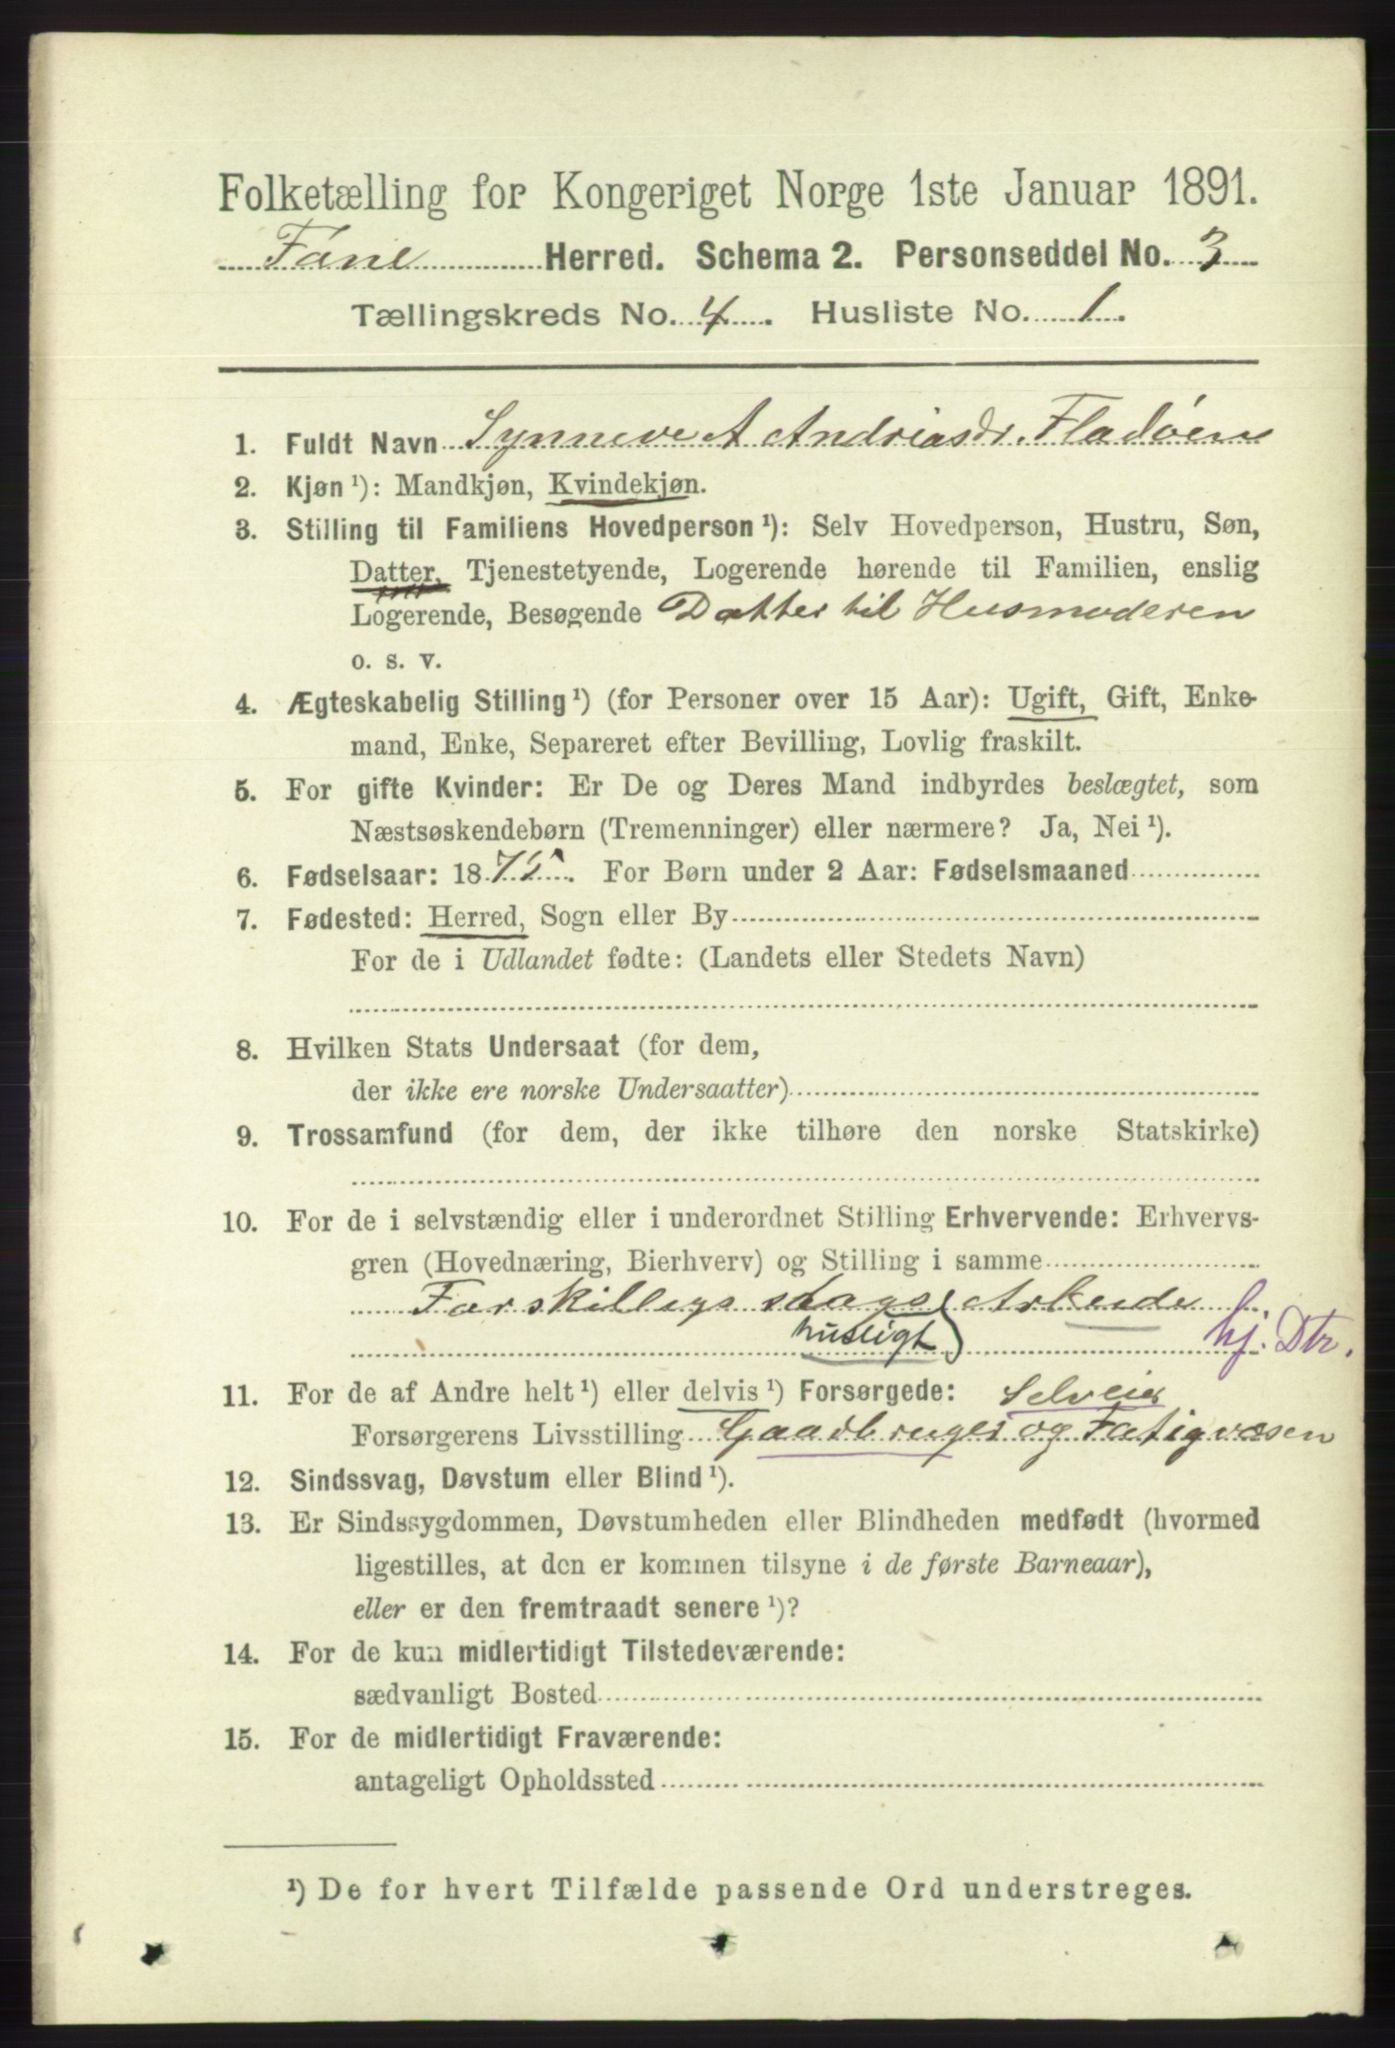 Folketælling for Kongeriget Norge 1ste Januar 1891.
Fane Herred. Schema 2. Personseddel No. 3
Tællingskreds No. 4. Husliste No. 1.
1. Fuldt Navn Synneve A Andriasdr. Fladøen
2. Kjøn ¹): Mandkjøn, Kvindekjøn.
3. Stilling til Familiens Hovedperson ¹): Selv Hovedperson, Hustru, Søn,
Datter, Tjenestetyende, Logerende hørende til Familien, enslig
Logerende, Besøgende Datter til Husmoderen
o. s. v.
4. Ægteskabelig Stilling ¹) (for Personer over 15 Aar): Ugift, Gift, Enke-
mand, Enke, Separeret efter Bevilling, Lovlig fraskilt.
5. For gifte Kvinder: Er De og Deres Mand indbyrdes beslægtet, som
Næstsøskendebørn (Tremenninger) eller nærmere? Ja, Nei ¹).
6. Fødselsaar: 1875. For Børn under 2 Aar: Fødselsmaaned
7. Fødested: Herred, Sogn eller By
For de i Udlandet fødte: (Landets eller Stedets Navn)
8. Hvilken Stats Undersaat (for dem,
der ikke ere norske Undersaatter)
9. Trossamfund (for dem, der ikke tilhøre den norske Statskirke)
10. For de i selvstændig eller i underordnet Stilling Erhvervende: Erhvervs-
gren (Hovednæring, Bierhverv) og Stilling i samme
Forskilligs slags Arbeide
husligt hj. Dtr.
11. For de af Andre helt ¹) eller delvis ¹) Forsørgede: Selveier
Forsørgerens Livsstilling Gaardbruger og Fatigvæsen
12. Sindssvag, Døvstum eller Blind ¹).
13. Er Sindssygdommen, Døvstumheden eller Blindheden medfødt (hvormed
ligestilles, at den er kommen tilsyne i de første Barneaar),
eller er den fremtraadt senere ¹)?
14. For de kun midlertidigt Tilstedeværende:
sædvanligt Bosted
15. For de midlertidigt Fraværende:
antageligt Opholdssted
¹) De for hvert Tilfælde passende Ord understreges.